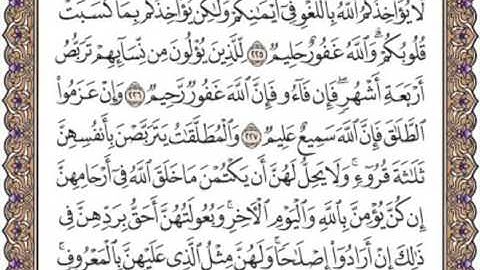 لَّا يُؤَاخِذُكُمُ ٱللَّهُ بِٱللَّغْوِ فِىٓ أَيْمَٰنِكُمْ وَلَٰكِن يُؤَاخِذُكُم بِمَا كَسَبَتْ
قُلُوبُكُمْ ۗ وَٱللَّهُ غَفُورٌ حَلِيمٌ ٢٢٥ لِّلَّذِينَ يُؤْلُونَ مِن نِّسَآئِهِمْ تَرَبُّصُ
أَرْبَعَةِ أَشْهُرٍ ۖ فَإِن فَآءُو فَإِنَّ ٱللَّهَ غَفُورٌ رَّحِيمٌ ٢٢٦ وَإِنْ عَزَمُوا۟
ٱلطَّلَٰقَ فَإِنَّ ٱللَّهَ سَمِيعٌ عَلِيمٌ ٢٢٧ وَٱلْمُطَلَّقَٰتُ يَتَرَبَّصْنَ بِأَنفُسِهِنَّ
ثَلَٰثَةَ قُرُوٓءٍ ۚ وَلَا يَحِلُّ لَهُنَّ أَن يَكْتُمْنَ مَا خَلَقَ ٱللَّهُ فِىٓ أَرْحَامِهِنَّ
إِن كُنَّ يُؤْمِنَّ بِٱللَّهِ وَٱلْيَوْمِ ٱلْءَاخِرِ ۚ وَبُعُولَتُهُنَّ أَحَقُّ بِرَدِّهِنَّ فِى
ذَٰلِكَ إِنْ أَرَادُوٓا۟ إِصْلَٰحًا ۚ وَلَهُنَّ مِثْلُ ٱلَّذِى عَلَيْهِنَّ بِٱلْمَعْرُوفِ ۚ